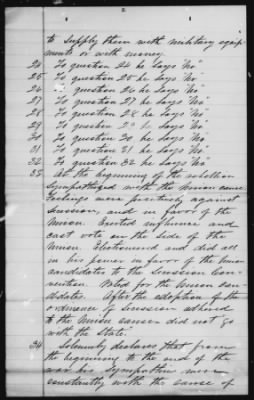 to supply them with military equip-
ments or with money.
24 To question 24 he says "No"
25 To question 25 he says "No"
26 " question 26 he says "No"
27 To question 27 he says "No"
28 To question 28 he says "No"
29 To question 29 he says "No"
30 To question 30 he says "No"
31 To question 31 he says "No"
32 To question 32 he says "No"
33 At the beginning of the rebellion
sympathized with the Union cause.
Feelings were positively against
secession, and in favor of the
Union. Exerted influence and
cast vote on the side of the
Union. Electioneered and did all
in his power in favor of the Union
candidates to the Secession Con-
vention. Voted for the Union can-
didates. After the adoption of the
ordinance of secession adhered
to the Union cause & did not go
with the State.
34 Solemnly declares that from
the beginning to the end of the
war his sympathies were
constantly with the cause of